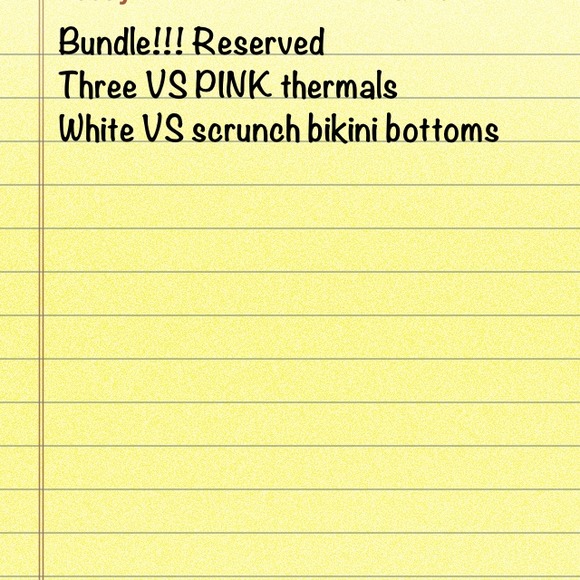 Bundle!!! Reserved
Three VS PINK thermals
White VS scrunch bikini bottoms